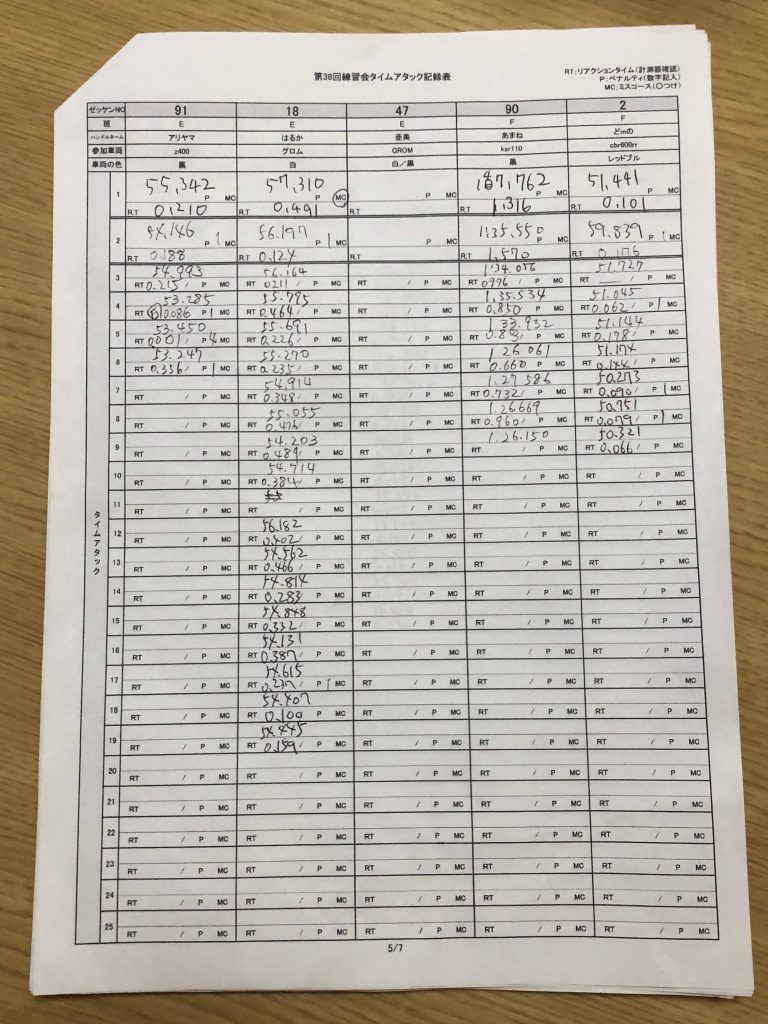 第38回練習会タイムアタック記録表
RT:リアクションタイム(計測器確認)
P:ペナルティ(数字記入)
MC:ミスコース(〇つけ)
ゼッケンNO 91 18 47 90 2
班 E E E F F
ハンドルネーム アリヤマ はるか 亜美 あまね どmの
参加車両 z400 グロム GROM ksr110 cbr600rr
車両の色 黒 白 白/黒 黒 レッドブル
タイムアタック
1 55,342 57,310 7,762 51,441
P MC P MC P MC P MC P MC
R.T 0,210 R.T 0,491 R.T R.T 1,316 R.T 0,101
2 54,146 56.197 1:35.550 59.839
P 1 MC P 1 MC P MC P MC P 1 MC
R.T 0.188 R.T 0.124 R.T R.T 1,570 R.T 0.176
3 54.993 56.164 1:34.056 51.727
RT 0.215 / P MC RT 0211 / P MC RT / P MC RT 0996 / P MC RT / P MC
4 53.285 55.795 1,35.534 51.045
RT 0.086 P 1 MC RT 0.464 / P MC RT / P MC RT 0.850 / P MC RT 0.062 / P 1 MC
5 53.450 55.691 1 33.932 51.144
RT 0.001 / P 4 MC RT 0.226 / P MC RT / P MC RT / P MC RT 0.178 / P MC
6 53.247 55.270 1 26 061 51.174
RT 0.356 / P 1 MC RT 0.235 / P MC RT / P MC RT 0.660 / P MC RT 0.144 / P MC
7 54,914 1.27 586 50.273
RT / P MC RT 0.348 / P MC RT / P MC RT 0.732 / P MC RT 0.090 / P 1 MC
8 55.055 1.26669 50.751
RT / P MC RT 0.476 / P MC RT / P MC RT 0.960 / P MC RT 0.079 / P 1 MC
9 54.203 1.26.150 50.321
RT / P MC RT 0.489 / P MC RT / P MC RT / P MC RT 0.066 / P MC
10 54.714
RT / P MC RT 0.384 / P MC RT / P MC RT / P MC RT / P MC
11
RT / P MC RT / P MC RT / P MC RT / P MC RT / P MC
12 56.182
RT / P MC RT 0.402 / P MC RT / P MC RT / P MC RT / P MC
13 54.562
RT / P MC RT 0.466 / P MC RT / P MC RT / P MC RT / P MC
14 54.814
RT / P MC RT 0.283 / P MC RT / P MC RT / P MC RT / P MC
15 54.848
RT / P MC RT 0.332 / P MC RT / P MC RT / P MC RT / P MC
16 54.131
RT / P MC RT 0.387 / P MC RT / P MC RT / P MC RT / P MC
17 54.615
RT / P MC RT 0.237 / P 1 MC RT / P MC RT / P MC RT / P MC
18 54.407
RT / P MC RT 0.100 P MC RT / P MC RT / P MC RT / P MC
19 54.445
RT / P MC RT 0.159 / P MC RT / P MC RT / P MC RT / P MC
20
RT / P MC RT / P MC RT / P MC RT / P MC RT / P MC
21
RT / P MC RT / P MC RT / P MC RT / P MC RT / P MC
22
RT / P MC RT / P MC RT / P MC RT / P MC RT / P MC
23
RT / P MC RT / P MC RT / P MC RT / P MC RT / P MC
24
RT / P MC RT / P MC RT / P MC RT / P MC RT / P MC
25
RT / P MC RT / P MC RT / P MC RT / P MC RT / P MC
5/7